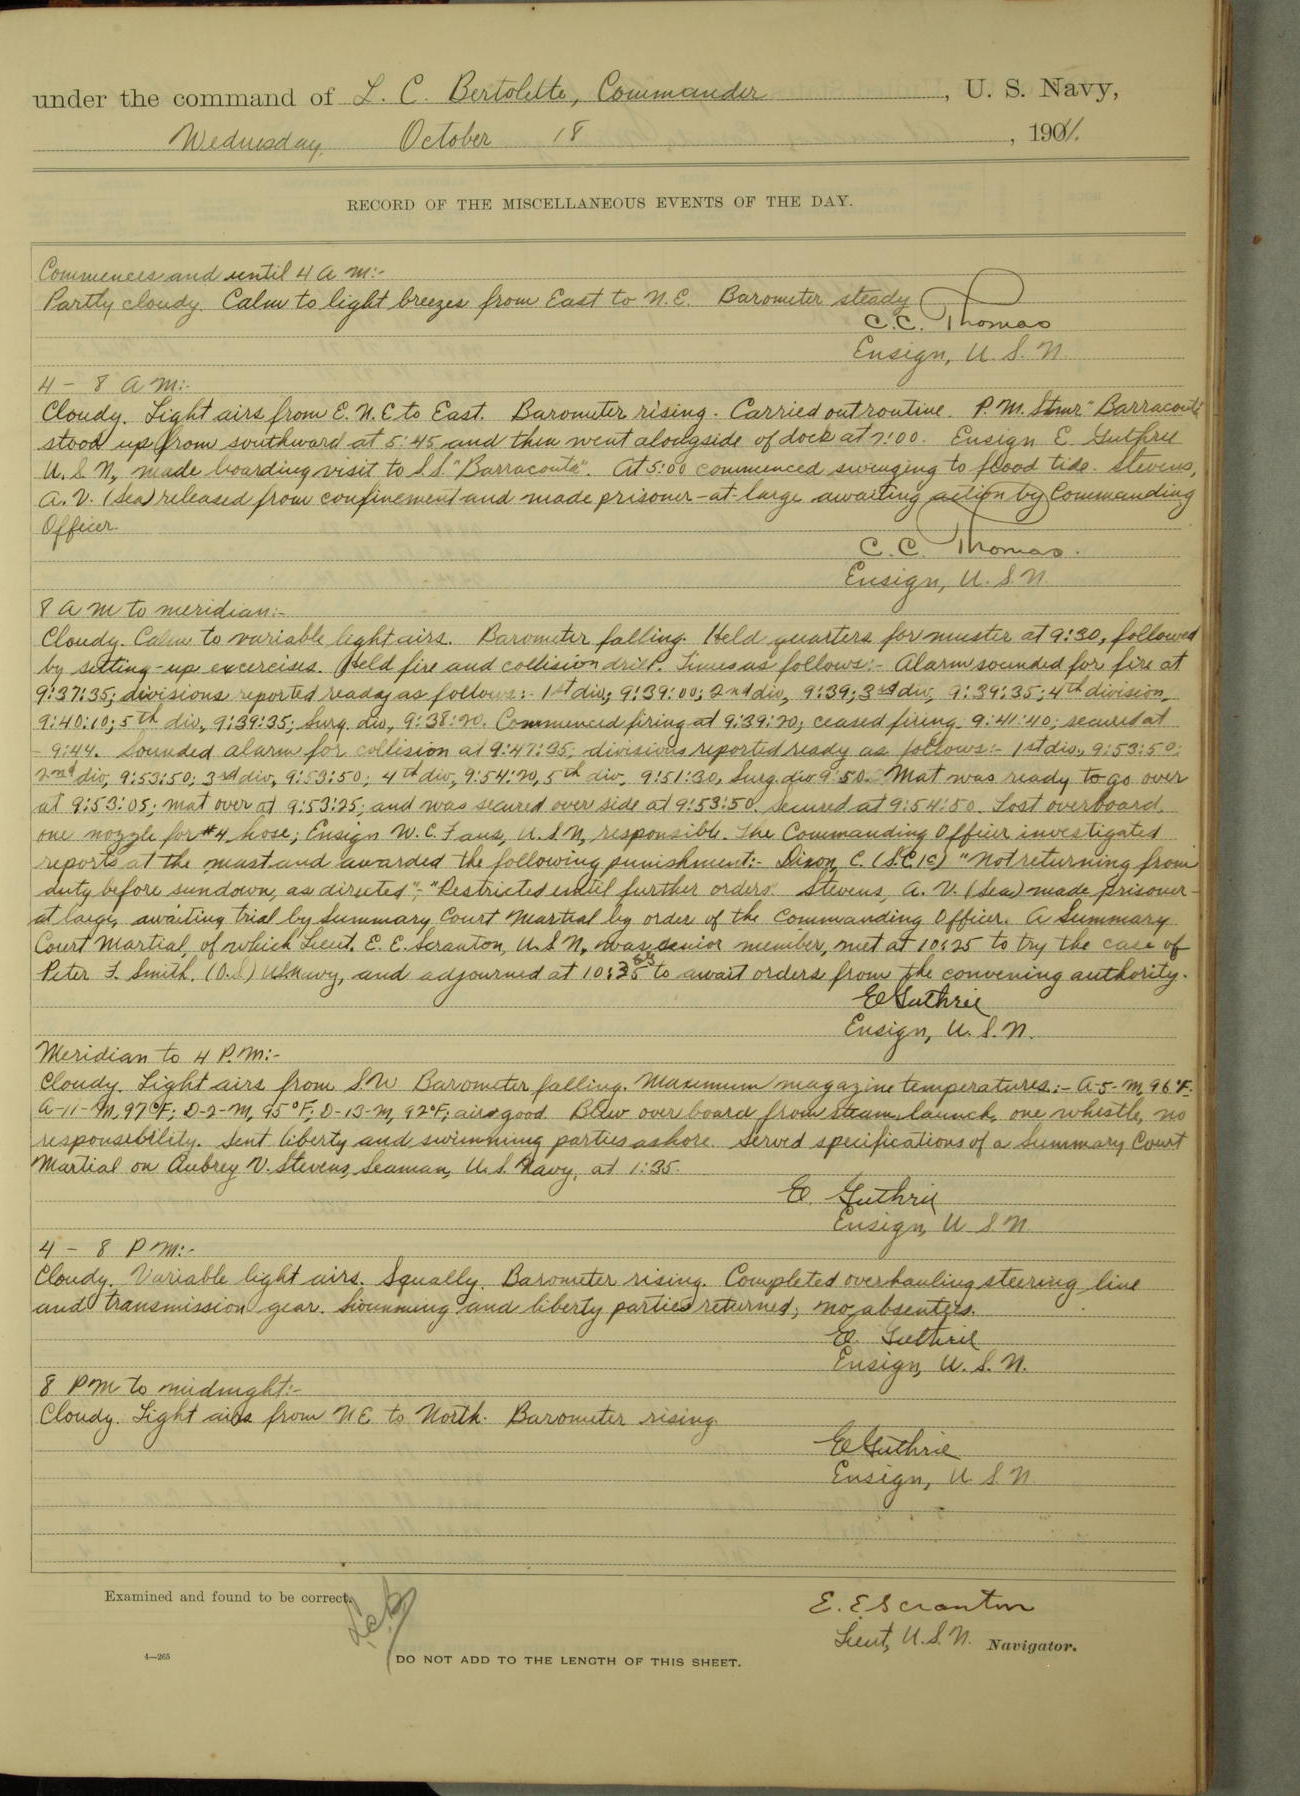 under the command of L. C. Bertolette, Commander, U. S. Navy,
Wednesday, October 18, 1911.
RECORD OF THE MISCELLANEOUS EVENTS OF THE DAY.
Commences and until 4 a m:-
Partly cloudy. Calm to light breezes from East to N.E. Barometer steady
C. C. Thomas
Ensign, U. S. N.
4 - 8 a m:-
Cloudy. Light airs from E.N.E to East. Barometer rising. Carried out routine. P. M. Stmr "Barracouta"
stood up from southward at 5:45 and then went alongside of dock at 7:00. Ensign E. Guthrie
U. S. N., made boarding visit to S.S. "Barracouta". At 5:00 commenced swinging to flood tide. Stevens,
A. V. (Sea) released from confinement and made prisoner-at-large awaiting action by Commanding
Officer.
C. C. Thomas.
Ensign, U. S. N.
8 a m to meridian:-
Cloudy. Calm to variable light airs. Barometer falling. Held quarters for muster at 9:30, followed
by setting-up excercises. Held fire and collision drill. Times as follows:- Alarm sounded for fire at
9:37:35; divisions reported ready as follows:- 1st div; 9:39:00; 2nd div, 9:39; 3rd div, 9:39:35; 4th division,
9:40:10; 5th div, 9:39:35; Surg. div, 9:38:20. Commenced firing at 9:39:20; ceased firing 9:41:40; secured at
- 9:44. Sounded alarm for collision at 9:47:35, divisions reported ready as follows:- 1st div., 9:53:50;
2nd div, 9:53:50; 3rd div, 9:53:50; 4th div, 9:54:20, 5th div, 9:51:30, Surg. div 9:50. Mat was ready to go over
at 9:53:05; mat over at 9:53:25; and was secured over side at 9:53:50. secured at 9:54:50. Lost overboard,
one nozzle for #4 hose; Ensign W. C. Faus, U.S.N, responsible. The Commanding Officer investigated
reports at the mast and awarded the following punishment:- Dixon, C. (S.C.1c) "Not returning from
duty before sundown, as directed"- "Restricted until further orders. Stevens, A. V. (Sea) made prisoner-
at large, awaiting trial by Summary Court Martial by order of the Commanding Officer. A Summary
Court Martial, of which Lieut. E. E. Scranton, U.S.N., was senior member, met at 10:25 to try the case of
Peter F. Smith. (O.S.) U.S. Navy, and adjourned at 10:35 to await orders from the convening authority.
E Guthrie
Ensign, U. S. N.
Meridian to 4 P.M:-
Cloudy. Light airs from S.W Barometer falling. Maximum magazine temperatures:- A-5-M, 96°F.
A-11-M, 97°F; D-2-M, 95°F; D-13-M, 92°F; airs good. Blew over board from steam launch, one whistle, no
responsibility. Sent liberty and swimming parties ashore. Served specifications of a Summary Court
Martial on Aubrey V. Stevens, Seaman, U. S. Navy, at 1:35.
E. Guthrie
Ensign, U S N
4 - 8 P M:-
Cloudy. Variable light airs. Squally. Barometer rising. Completed overhauling steering line
and transmission gear. Swimming and liberty parties returned, no absentees.
E. Guthrie
Ensign, U. S. N.
8 PM to midnight:-
Cloudy. Light airs from NE to North. Barometer rising.
E Guthrie
Ensign, U. S. N.
Examined and found to be correct.
L.C.B.
E. E Scranton
Lieut, U.S.N. Navigator.
4—265
DO NOT ADD TO THE LENGTH OF THIS SHEET.